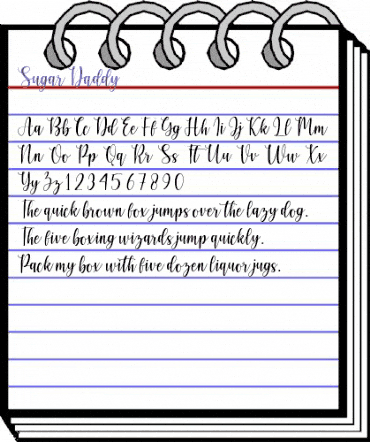 Sugar Daddy
Aa Bb Cc Dd Ee Ff Gg Hh Ii Jj Kk Ll Mm
Nn Oo Pp Qq Rr Ss Tt Uu Vv Ww Xx
Yy Zz 1 2 3 4 5 6 7 8 9 0
The quick brown fox jumps over the lazy dog.
The five boxing wizards jump quickly.
Pack my box with five dozen liquor jugs.